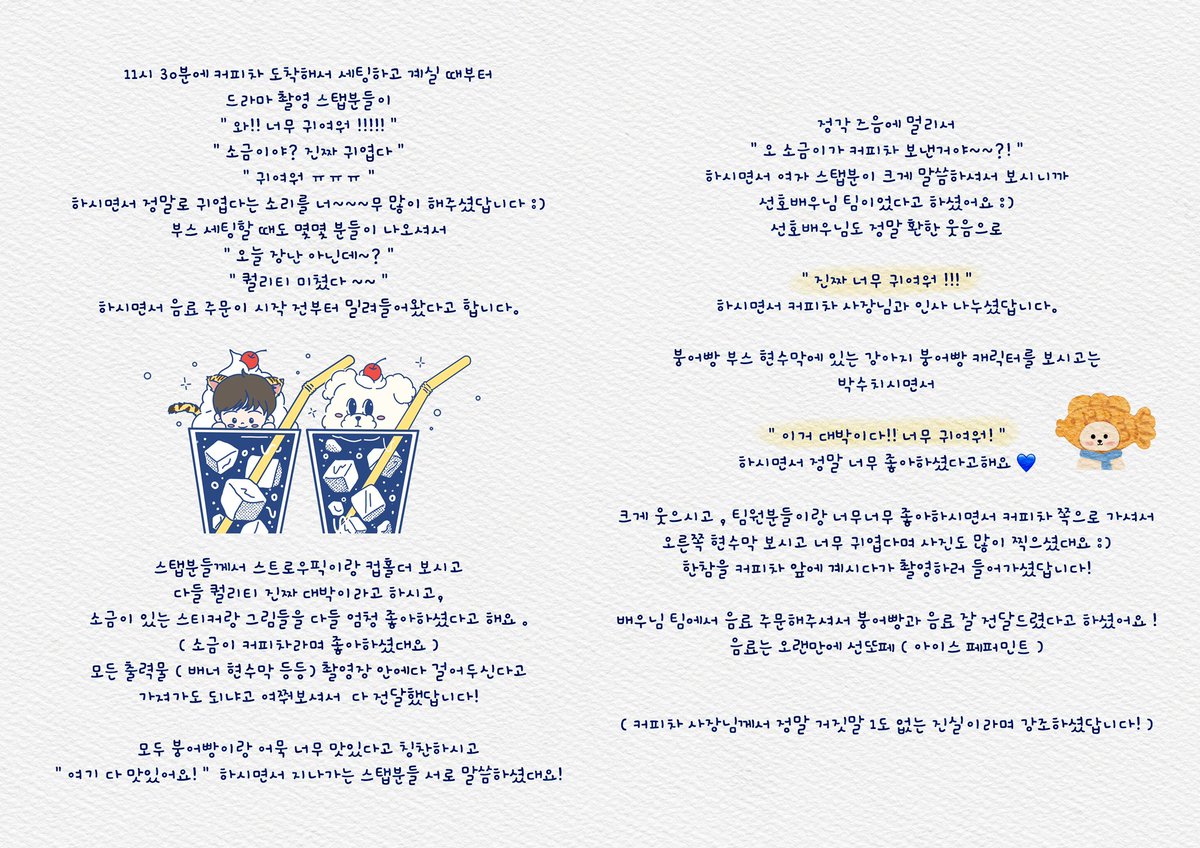 11시 30분에 커피차 도착해서 세팅하고 계실 때부터
드라마 촬영 스탭분들이
" 와!! 너무 귀여워 !!!!! "
" 소금이야? 진짜 귀엽다 "
" 귀여워 ㅠㅠㅠ "
하시면서 정말로 귀엽다는 소리를 너~~~무 많이 해주셨답니다 :)
부스 세팅할 때도 몇몇 분들이 나오셔서
" 오늘 장난 아닌데~? "
" 퀄리티 미쳤다 ~~ "
하시면서 음료 주문이 시작 전부터 밀려들어왔다고 합니다.
스탭분들께서 스트로우픽이랑 컵홀더 보시고
다들 퀄리티 진짜 대박이라고 하시고,
소금이 있는 스티커랑 그림들을 다들 엄청 좋아하셨다고 해요 .
( 소금이 커피차라며 좋아하셨대요 )
모든 출력물 ( 배너 현수막 등등) 촬영장 안에다 걸어두신다고
가져가도 되냐고 여쭤보셔서 다 전달했답니다!
모두 붕어빵이랑 어묵 너무 맛있다고 칭찬하시고
" 여기 다 맛있어요! " 하시면서 지나가는 스탭분들 서로 말씀하셨대요!
정각 즈음에 멀리서
" 오 소금이가 커피차 보낸거야~~?! "
하시면서 여자 스탭분이 크게 말씀하셔서 보시니까
선호배우님 팀이었다고 하셨어요 :)
선호배우님도 정말 환한 웃음으로
" 진짜 너무 귀여워 !!! "
하시면서 커피차 사장님과 인사 나누셨답니다.
붕어빵 부스 현수막에 있는 강아지 붕어빵 캐릭터를 보시고는
박수치시면서
" 이거 대박이다!! 너무 귀여워! "
하시면서 정말 너무 좋아하셨다고해요 💙
크게 웃으시고 , 팀원분들이랑 너무너무 좋아하시면서 커피차 쪽으로 가셔서
오른쪽 현수막 보시고 너무 귀엽다며 사진도 많이 찍으셨대요 :)
한참을 커피차 앞에 계시다가 촬영하러 들어가셨답니다!
배우님 팀에서 음료 주문해주셔서 붕어빵과 음료 잘 전달드렸다고 하셨어요 !
음료는 오랜만에 선또페 ( 아이스 페퍼민트 )
( 커피차 사장님께서 정말 거짓말 1도 없는 진실이라며 강조하셨답니다! )